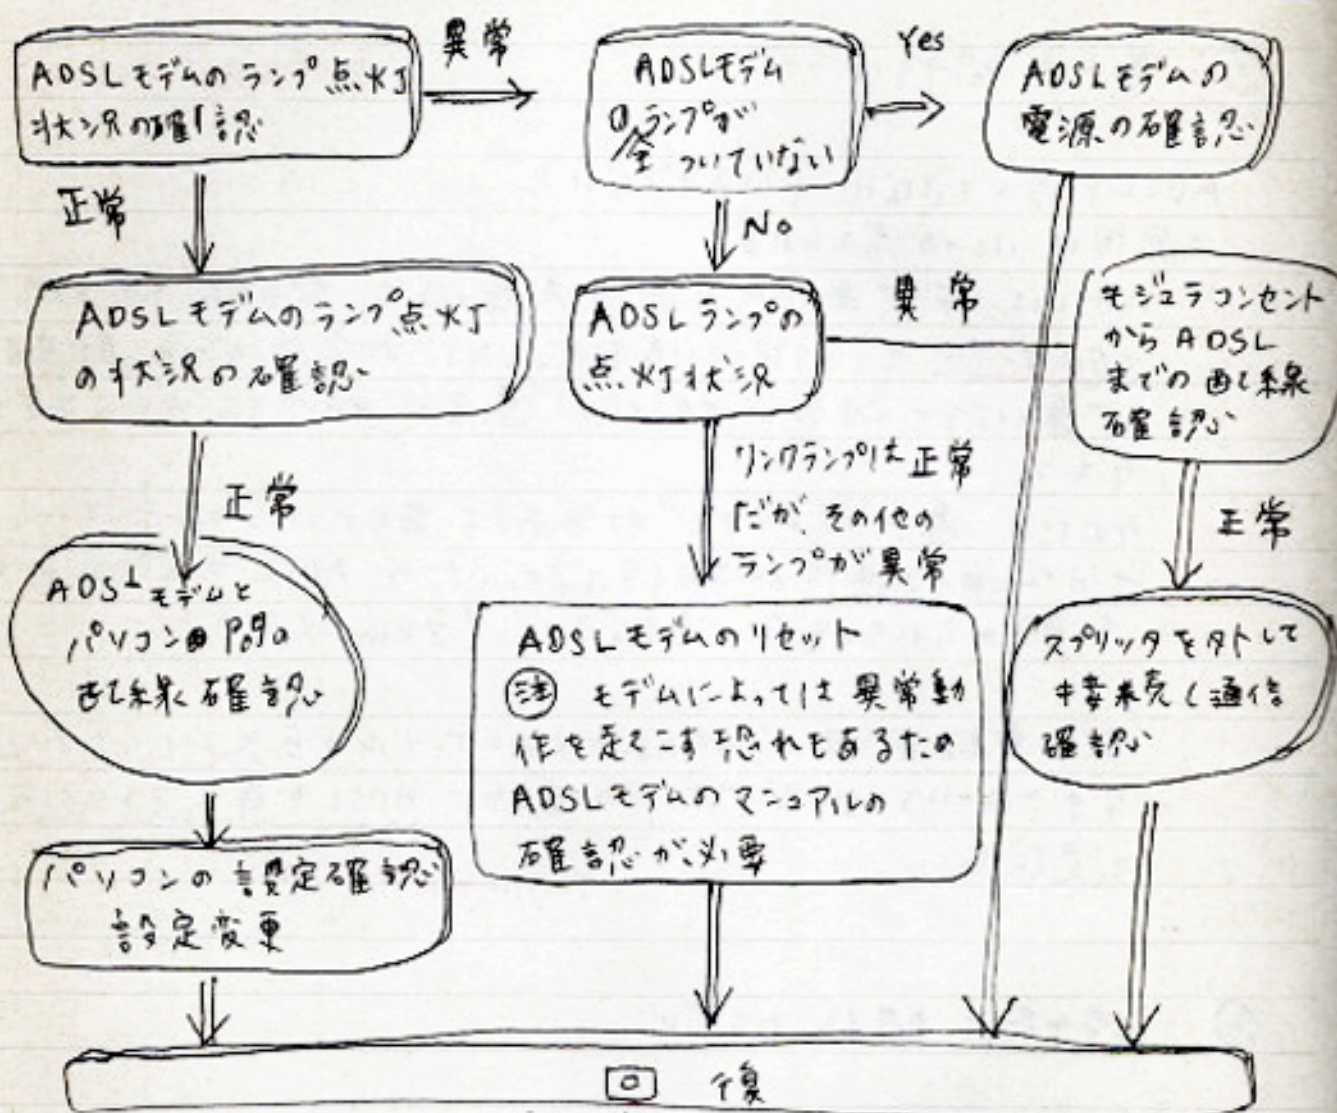 ADSLモデムのランプ点灯
状況の確認
異常
ADSLモデム
のランプが
全ついていない
Yes
ADSLモデムの
電源の確認
正常
No
ADSLモデムのランプ点灯
の状況の確認
ADSLランプの
点灯状況
異常
モジュラコンセント
からADSL
までの配線
確認
正常
リンクランプは正常
だが、その他の
ランプが異常
正常
ADSLモデムと
パソコン間の
配線確認
ADSLモデムのリセット
注 モデムによっては異常動
作を起こす恐れもあるため
ADSLモデムのマニュアルの
確認が必要
スプリッタを外して
接続し通信
確認
パソコンの設定確認
設定変更
回復